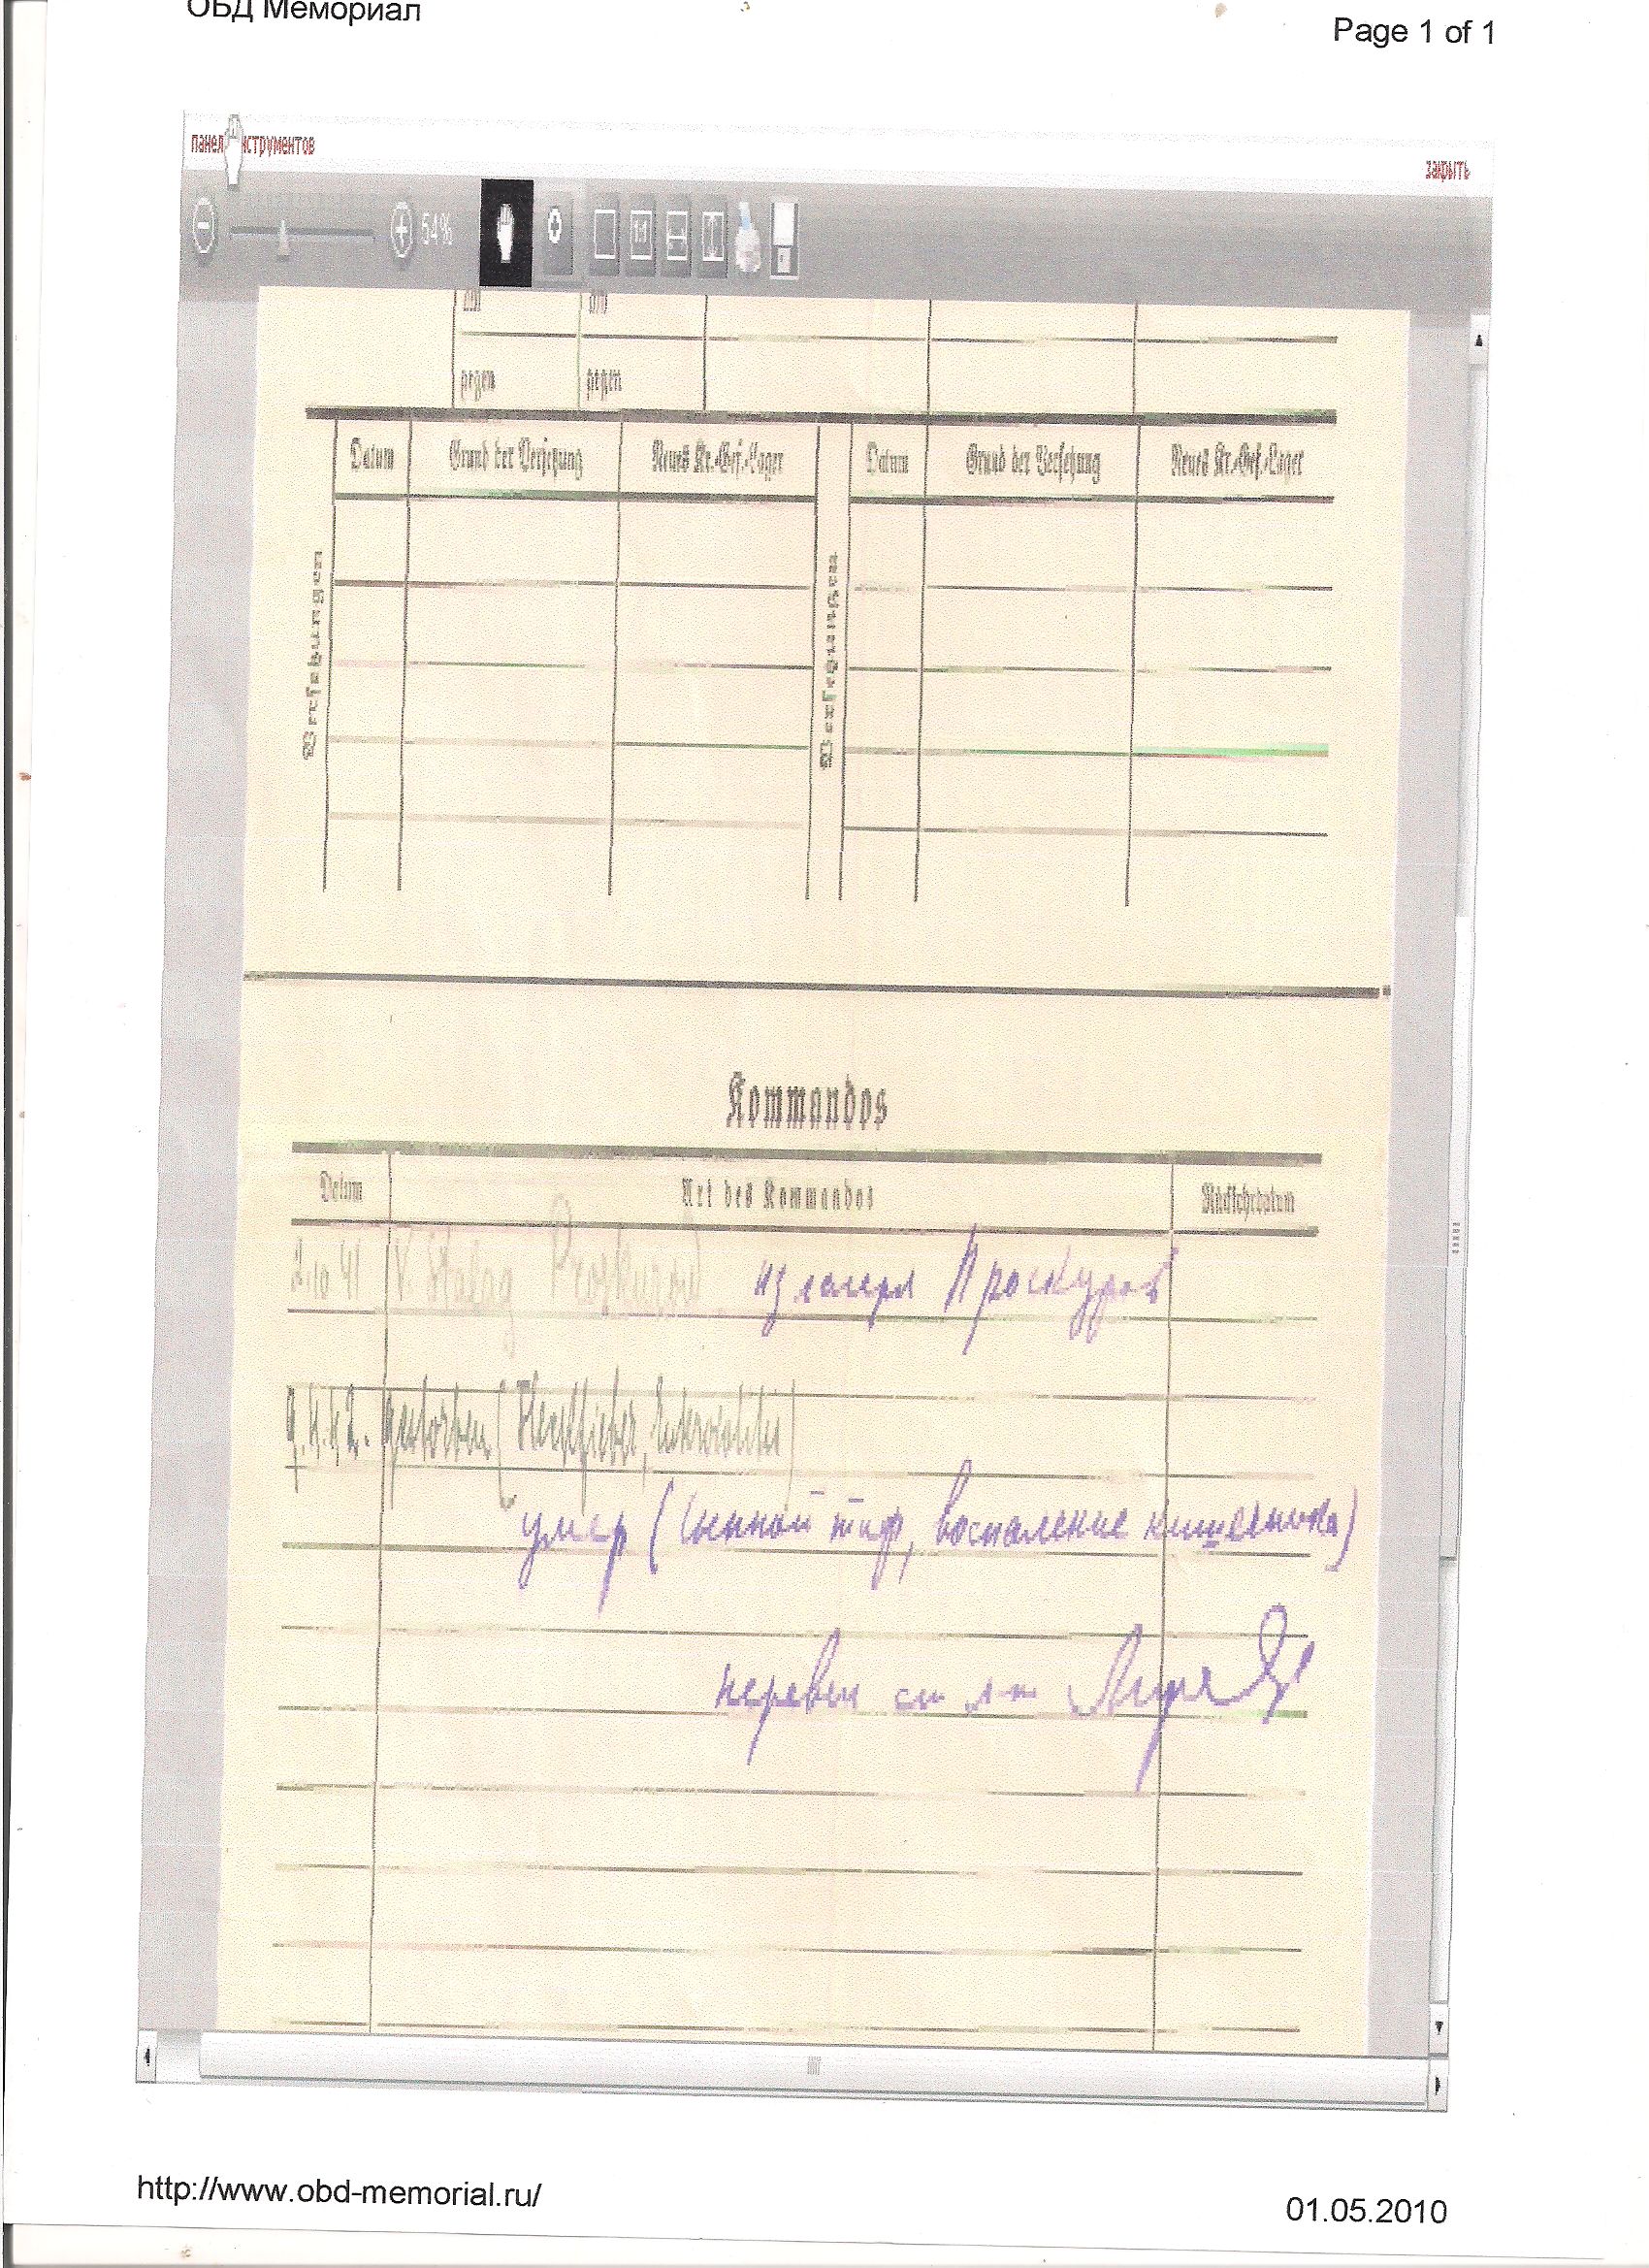 ОБД Мемориал
Page 1 of 1
панел нструментов
закрыть
54%
1:1
gegen gegen
Datum Grund der Versetzung Neues Kr.-Gef.-Lager Datum Grund der Versetzung Neues Kr.-Gef.-Lager
Versetzungen
Versetzungen
Kommandos
Datum Art des Kommandos Rückkehrdatum
2.10 41 V. Stalag Proskurow из лагеря Проскуров
9.4.42. gestorben (Fleckfieber, )
умер (сыпной тиф, воспаление кишечника)
перевел
http://www.obd-memorial.ru/
01.05.2010